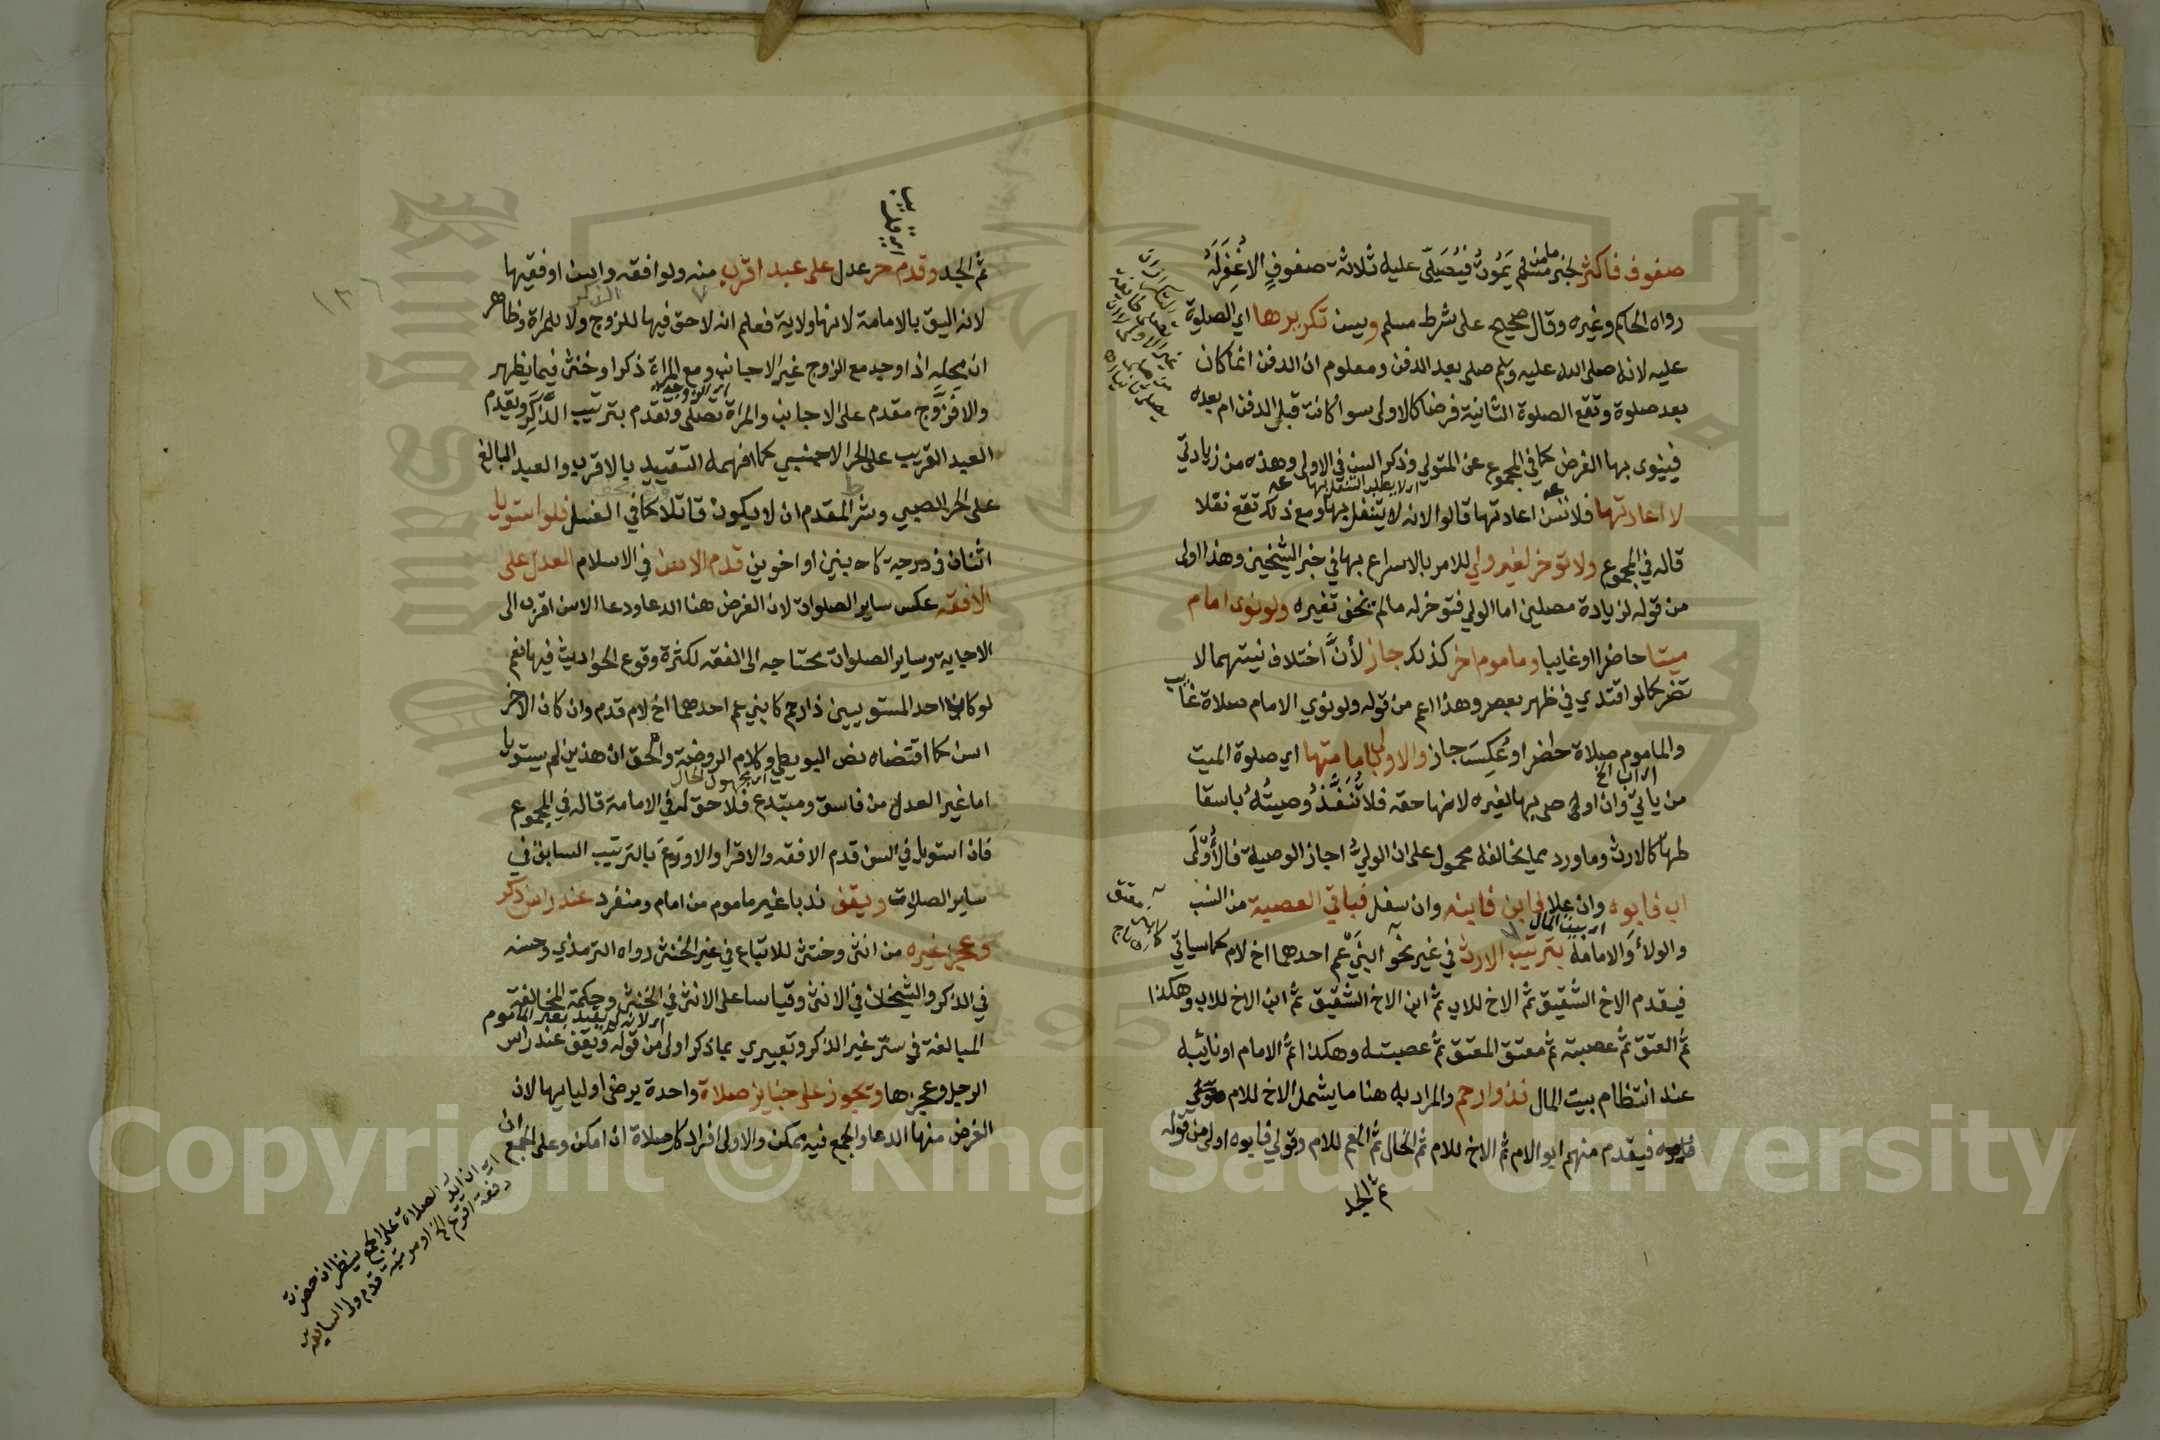 صفوف فاكثر لخبر ما من مسلم يَمُوتُ فيُصَلِّي عليه ثلاثة صفوفٍ الا غُفِرَ لَهُ
رواه الحاكم وغيره وقال صحيح على شرط مسلم ويسن تكريرها اي الصلوة
عليه لانه صلى الله عليه وسلم صلى بعد الدفن ومعلوم ان الدفن انما كان
بعد صلوة وتقع الصلوة الثانية فرضا كالاولى سوا كانت قبل الدفن ام بعده
فينوى بها الفرض كما في المجموع عن المتولي وذكر السن في الاولى وهذه من زيادتي
لا اعادتها فلا تسن اعادتها قالوا لانه لا يتنفل بها ومع ذلك تقع نفلا
قاله في المجموع ولا توخر لغير ولي للامر بالاسراع بها في خبر الشيخين وهذا اولى
من قوله لزيادة مصلين اما الولي فتوخر له ما لم يخف تغيره ولو نوى امام
ميتا حاضرا او غايبا وماموم اخر كذلك جاز لأنَّ اختلاف نيتهما لا
تضر كما لو اقتدي في ظهر بعصر وهذا اعم من قوله ولو نوي الامام صلاة غايب
والماموم صلاة حاضر او عُكِسَ جاز والاولى بامامتها اي صلوة الميت
من ياتي وان اوصى بها لغيره لانها حقه فلا تُنَفَّذُ وصيتُهُ باسقا
طها كالارث وما ورد مما يخالفه محمول على ان الوليَّ اجاز الوصية فالأَوْلَى
اب فابوه وان علا فابن فابنه وان سفل فباقي العصبة من النسب
والولاء والامامة بترتيب الارث في غير نحو ابنَيْ عم احدهما اخ لام كما سياتي
فيقدم الاخ الشقيق ثم الاخ للاب ثم ابن الاخ الشقيق ثم ابن الاخ للاب وهكذا
ثم المعتق ثم عصبته ثم معتق المعتق ثم عصبته وهكذا ثم الامام او نائبه
عند انتظام بيت المال فذوا رحم والمراد به هنا ما يشمل الاخ للام
فيقدم منهم ابو الام ثم الاخ للام ثم الخال ثم العم للام وقولي فابوه اولى من قوله
ثم الجد
اي بيت المال
ثم الجد وقدم حر عدل على عبد اقرب منه ولو افقه واسن او فقيها
لانه اليق بالامامة لانها ولاية فعلم انه لا حق فيها للزوج ولا للمراة وظاهر
ان محله اذا وجد مع الزوج غير الاجانب ومع المراة ذكرا وخنثى فيما يظهر
والا فالزوج مقدم على الاجانب والمراة تصلي وتقدم بترتيب الذَّكَرِ ويقدم
العبد القريب على الحر الاجنبي كما افهمه التقييد بالاقرب والعبد البالغ
على الحر الصبي وشرط المقدم ان لا يكون قاتلا كما في الغسل فلو استويا
اثنان في درجة كابنين او اخوين قدم الاسن في الاسلام العدل على
الافقه عكس ساير الصلوات لان الغرض هنا الدعا ودعا الاسن اقرب الى
الاجابة وساير الصلوات محتاجه الى الفقه لكثرة وقوع الحوادث فيها نعم
لو كان احد المستويين ذا رحم كابني عم احدهما اخ لام قدم وان كان الاخر
اسن كما اقتضاه نص البويطي وكلام الروضة والحق ان هذين لم يستويا
اي مجهول الحال
اما غير العدل من فاسق ومبتدع فلا حق له في الامامة قاله في المجموع
فان استويا في السن قدم الافقه والاقرا والاورع بالترتيب السابق في
ساير الصلوات ويقف ندبا غير ماموم من امام ومنفرد عند راس ذكر
وعجز غيره من انثى وخنثى للاتباع في غير الخنثى رواه الترمذي وحسنه
في الذكر والشيخان في الانثى وقياسا على الانثى في الخنثى وحكمة المخالفة
اي لانه لم يقيد بغير الماموم
المبالغة في ستر غير الذكر وتعبيري بما ذكر اولى من قوله ويقف عند راس
الرجل وعجزها وتجوز على جنايز صلاة واحدة برضى اوليايها لان
الغرض منها الدعا والجمع فيه ممكن والاولى افراد كل صلاة ان امكن وعلى الجمع ان